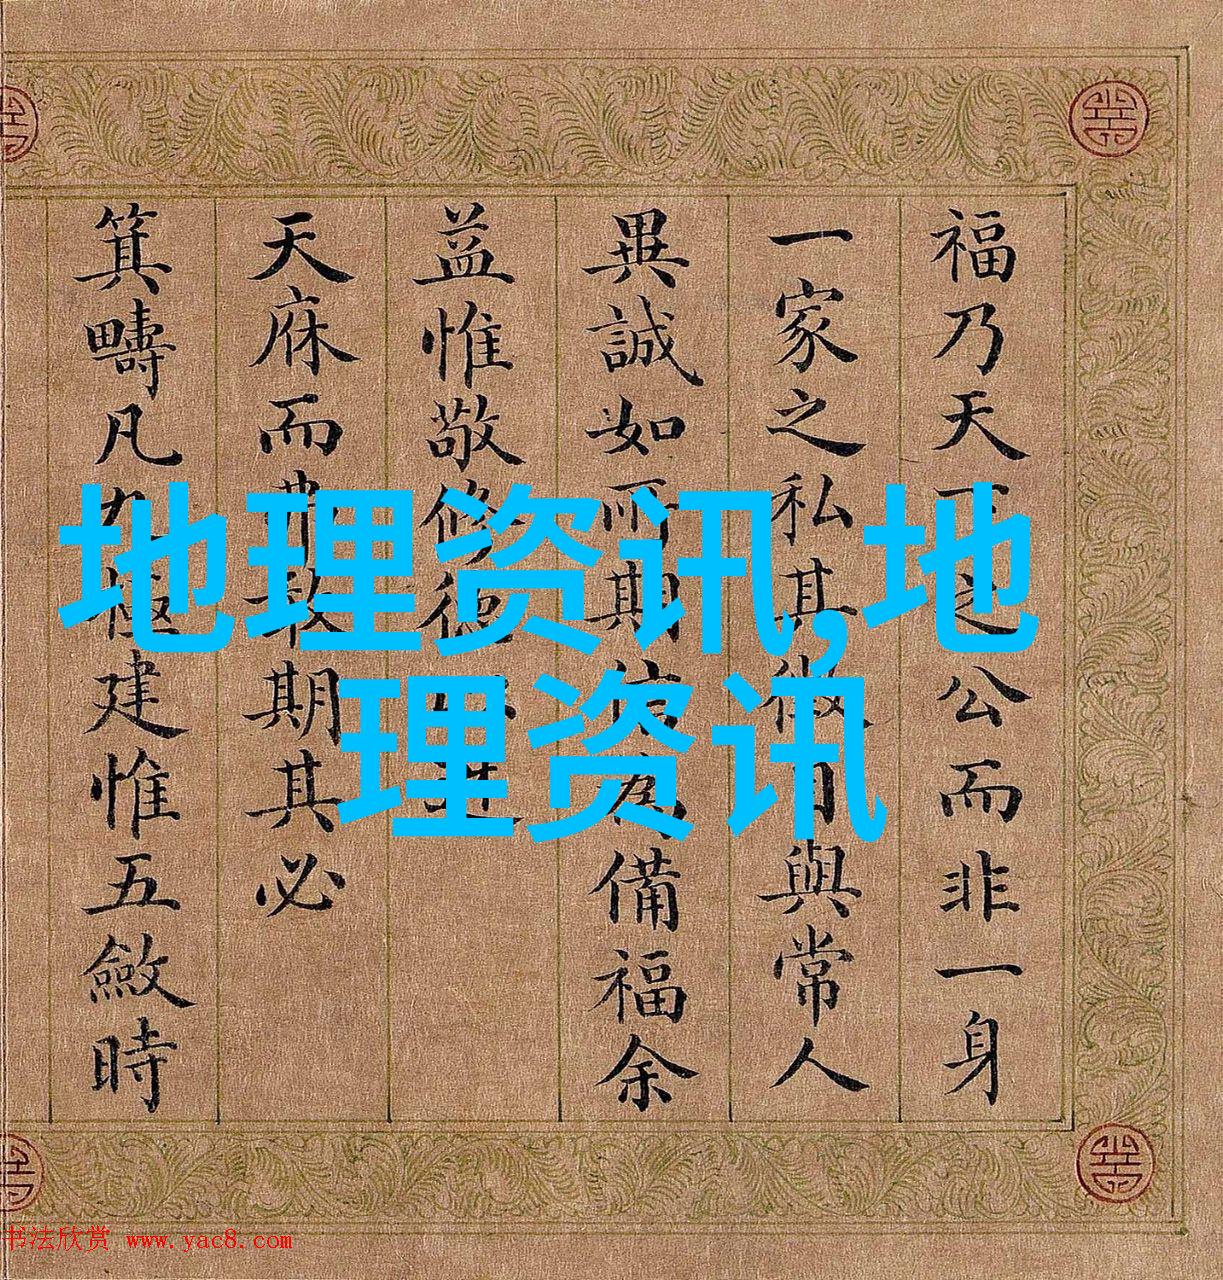 福乃天下之公而非一身
一家之私其徵與常人
異誠如所期信為備福余
益惟敬修德
天庥而敢期其必
箕疇凡九極建惟五斂時
地理资讯,地
理资讯
书法欣赏 www.yac8.com